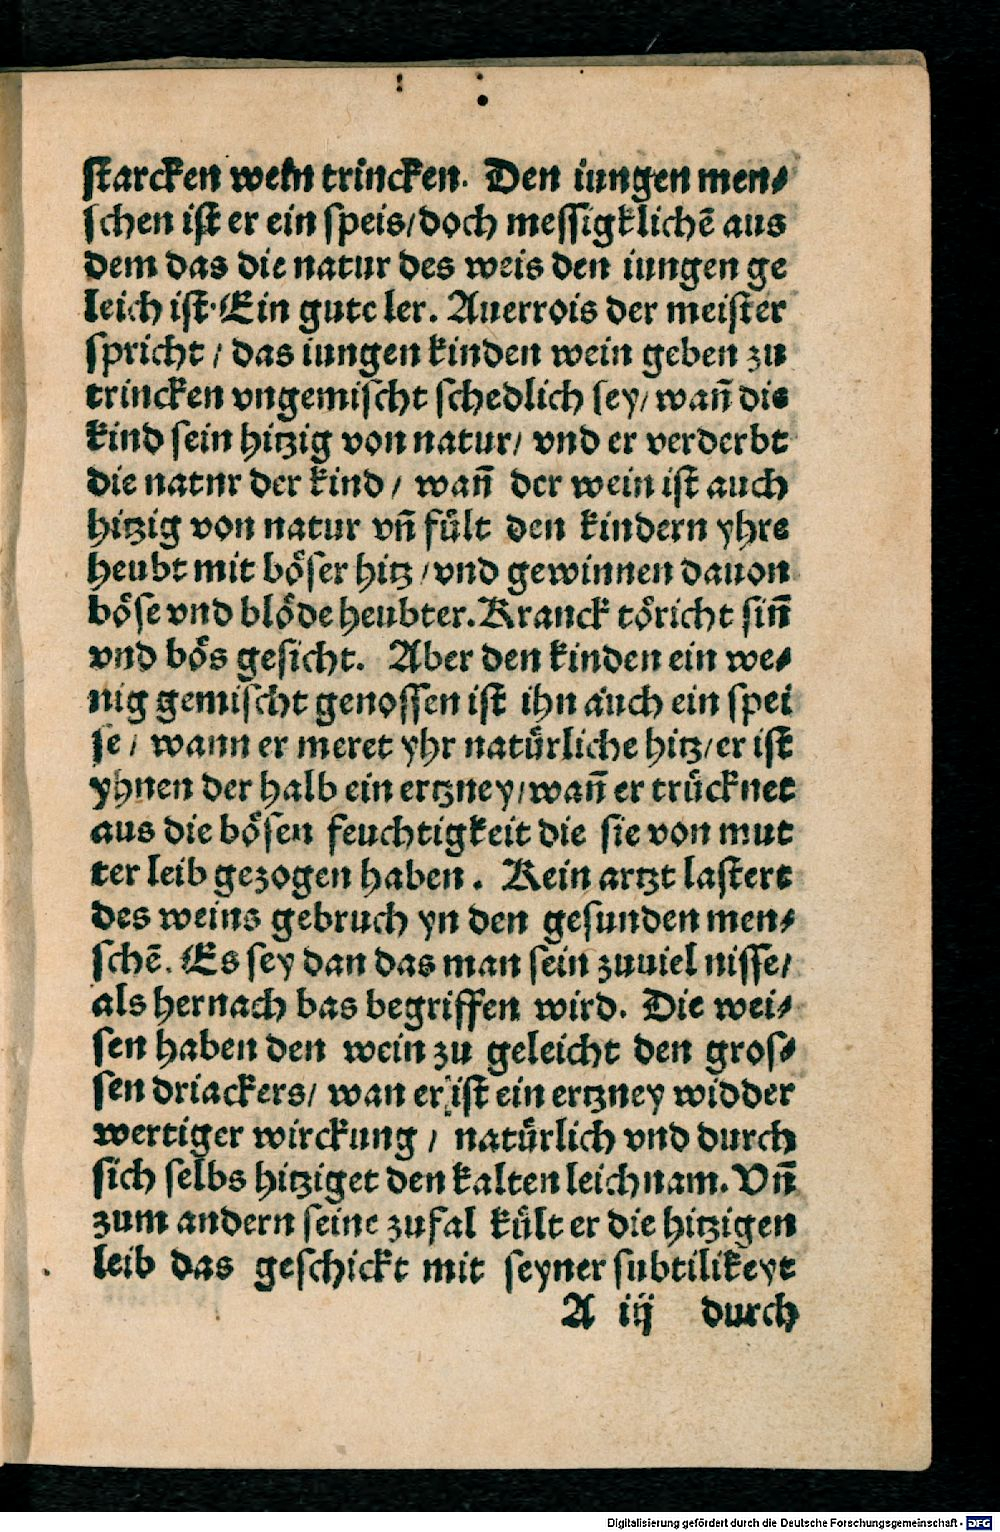 starcken wein trincken. Den iungen men⸗
schen ist er ein speis/doch messigklichē aus
dem das die natur des weis den iungen ge
leich ist. Ein gute ler. Auerrois der meister
spricht / das iungen kinden wein geben zu
trincken vngemischt schedlich sey/ wañ die
kind sein hitzig von natur/ vnd er verderbt
die natnr der kind / wañ der wein ist auch
hitzig von natur vñ fůlt den kindern yhre
heubt mit bȯser hitz /vnd gewinnen dauon
böse vnd blöde heubter. Kranck töricht siñ
vnd bös gesicht. Aber den kinden ein we⸗
nig gemischt genossen ist ihn auch ein spei
se / wann er meret yhr natürliche hitz/er ist
yhnen der halb ein ertzney/wañ er trücknet
aus die bösen feuchtigkeit die sie von mut
ter leib gezogen haben. Kein artzt lastert
des weins gebruch yn den gesunden men⸗
schē. Es sey dan das man sein zuuiel nisse/
als hernach bas begriffen wird. Die wei⸗
sen haben den wein zu geleicht den gros⸗
sen driackers/ wan er ist ein ertzney widder
wertiger wirckung / natürlich vnd durch
sich selbs hitziget den kalten leichnam. Vñ
zum andern seine zufal kült er die hitzigen
leib das geschickt mit seyner subtilikeyt
A iij durch
Digitalisierung gefördert durch die Deutsche Forschungsgemeinschaft - DFG